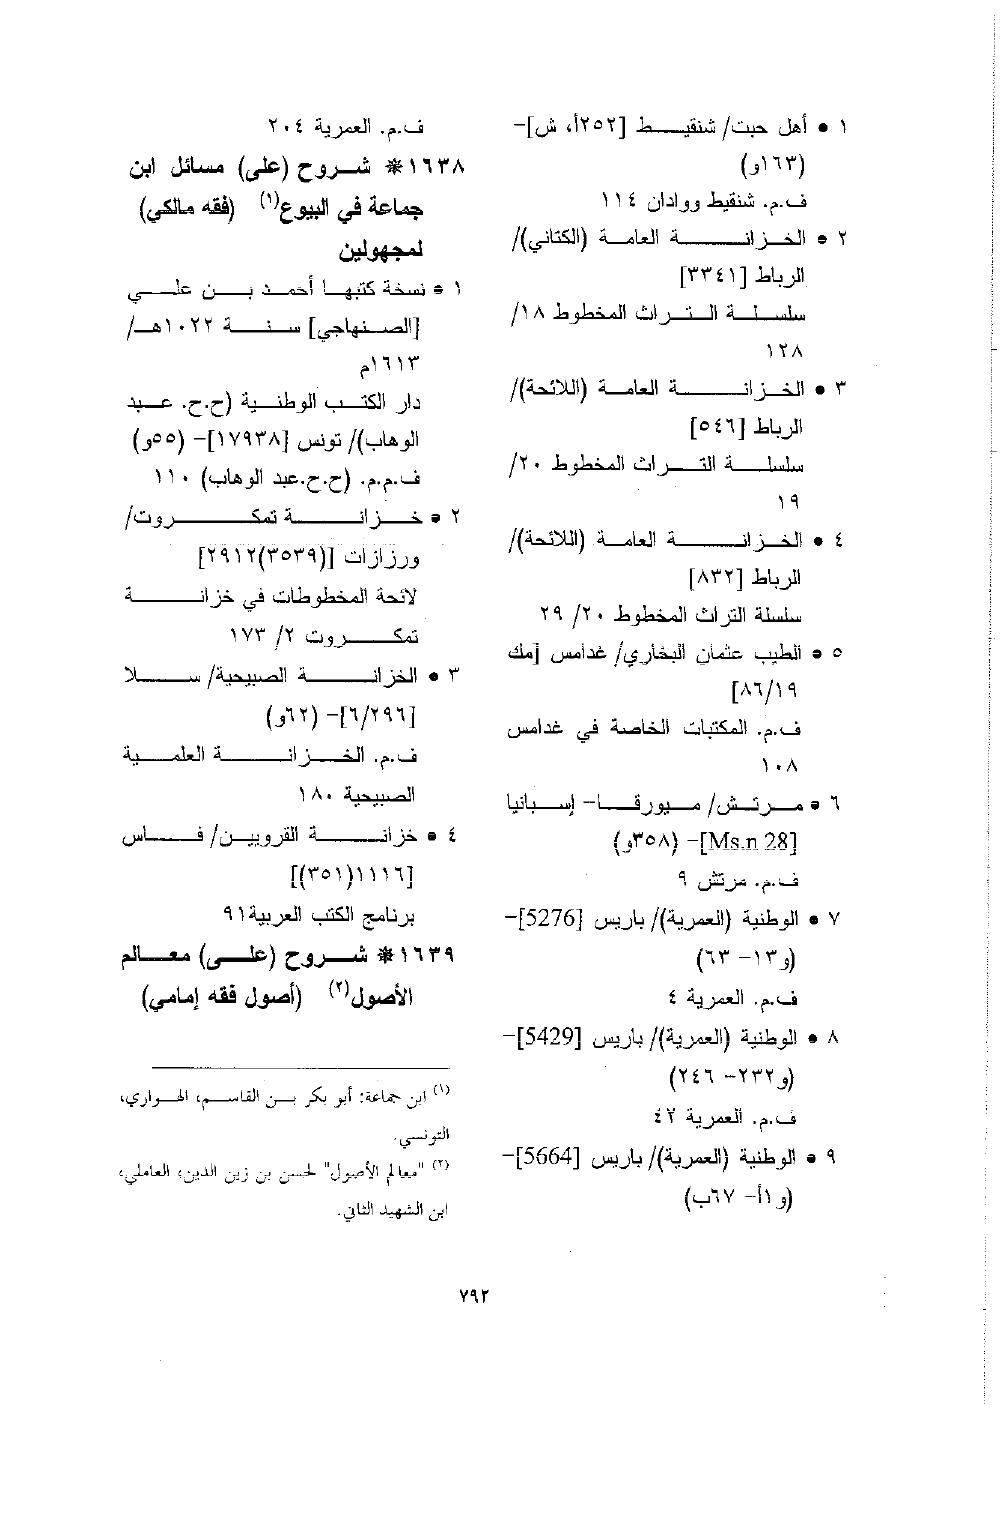 ١ • أهل حبت/ شنقيط [٢٥٢أ، ش]-
(١٦٣و)
ف.م. شنقيط ووادان ١١٤
٢ • الخزانة العامة (الكتاني)/
الرباط [٣٣٤١]
سلسلة التراث المخطوط ١٨/
١٢٨
٣ • الخزانة العامة (اللائحة)/
الرباط [٥٤٦]
سلسلة التراث المخطوط ٢٠/
١٩
٤ • الخزانة العامة (اللائحة)/
الرباط [٨٣٢]
سلسلة التراث المخطوط ٢٠/ ٢٩
٥ • الطيب عثمان البخاري/ غدامس [مك
٨٦/١٩]
ف.م. المكتبات الخاصة في غدامس
١٠٨
٦ • مرتش/ ميورقا- إسبانيا
[Ms.n 28]- (٣٥٨و)
ف.م. مرتش ٩
٧ • الوطنية (العمرية)/ باريس [5276]-
(و١٣- ٦٣)
ف.م. العمرية ٤
٨ • الوطنية (العمرية)/ باريس [5429]-
(و٢٣٢- ٢٤٦)
ف.م. العمرية ٤٢
٩ • الوطنية (العمرية)/ باريس [5664]-
(و١أ- ٦٧ب)
ف.م. العمرية ٢٠٤
١٦٣٨* شروح (على) مسائل ابن
جماعة في البيوع(١) (فقه مالكي)
لمجهولين
١ • نسخة كتبها أحمد بن علي
[الصنهاجي] سنة ١٠٢٢هـ/
١٦١٣م
دار الكتب الوطنية (ح.ح. عبد
الوهاب)/ تونس [١٧٩٣٨]- (٥٥و)
ف.م.م. (ح.ح.عبد الوهاب) ١١٠
٢ • خزانة تمكروت/
ورزازات [(٣٥٣٩)٢٩١٢]
لائحة المخطوطات في خزانة
تمكروت ٢/ ١٧٣
٣ • الخزانة الصبيحية/ سلا
[٦/٢٩٦]- (٦٢و)
ف.م. الخزانة العلمية
الصبيحية ١٨٠
٤ • خزانة القرويين/ فاس
[١١١٦(٣٥١)]
برنامج الكتب العربية٩١
١٦٣٩* شروح (على) معالم
الأصول(٢) (أصول فقه إمامي)
(١) ابن جماعة: أبو بكر بن القاسم، الهواري،
التونسي.
(٢) "معالم الأصول" لحسن بن زين الدين، العاملي،
ابن الشهيد الثاني.
٧٩٢